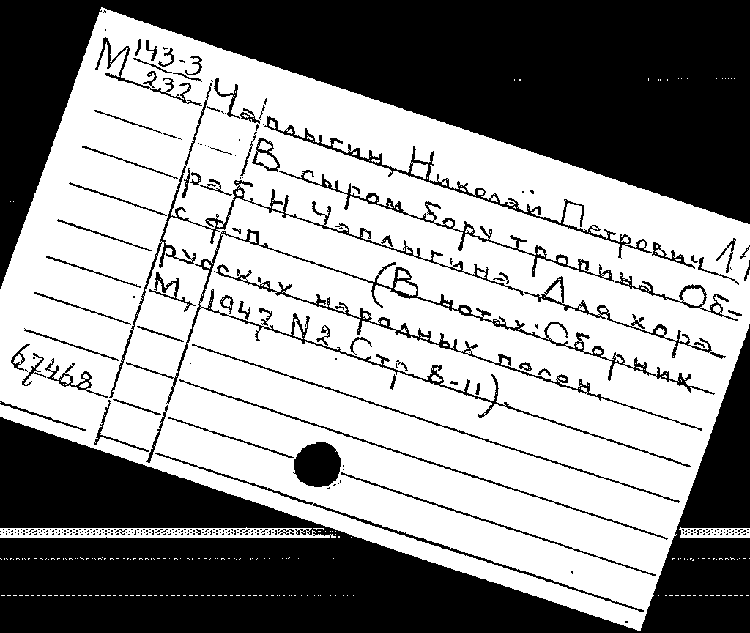 М 143-3
232
Чаплыгин, Николай Петрович 11
В сыром бору тропина. Об-
раб. Н. Чаплыгина. Для хора
с ф-п. (В нотах: Сборник
русских народных песен.
М., 1947, N2. Стр. 8-11).
67468